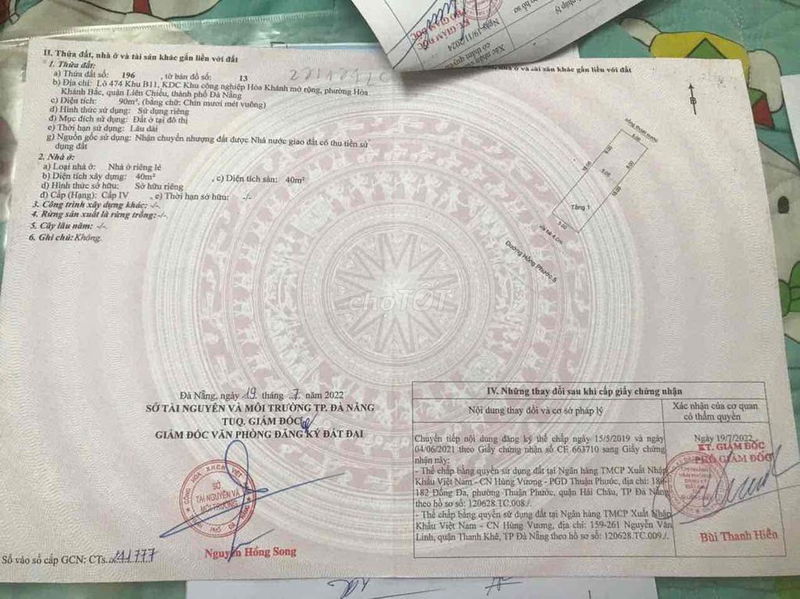 II. Thửa đất, nhà ở và tài sản khác gắn liền với đất
1. Thửa đất:
a) Thửa đất số: 196 , tờ bản đồ số: 13
b) Địa chỉ: Lô 474 Khu B11, KDC Khu công nghiệp Hòa Khánh mở rộng, phường Hòa
Khánh Bắc, quận Liên Chiểu, thành phố Đà Nẵng
c) Diện tích: 90m², (bằng chữ: Chín mươi mét vuông)
d) Hình thức sử dụng: Sử dụng riêng
đ) Mục đích sử dụng: Đất ở tại đô thị
e) Thời hạn sử dụng: Lâu dài
g) Nguồn gốc sử dụng: Nhận chuyển nhượng đất được Nhà nước giao đất có thu tiền sử
dụng đất
2. Nhà ở:
a) Loại nhà ở: Nhà ở riêng lẻ
b) Diện tích xây dựng: 40m² , c) Diện tích sàn: 40m²
d) Hình thức sở hữu: Sở hữu riêng
đ) Cấp (Hạng): Cấp IV , e) Thời hạn sở hữu: -/-
3. Công trình xây dựng khác: -/-
4. Rừng sản xuất là rừng trồng:-/-
5. Cây lâu năm: -/-
6. Ghi chú: Không.
ở và tài sản khác gắn liền với đất
19/11/2024
GIÁM ĐỐC
B
5.00
18.00
5.00
Tầng 1
5.00
Đường Hồng Phước 5
choTỐT
Đà Nẵng, ngày 19 tháng 7 năm 2022
SỞ TÀI NGUYÊN VÀ MÔI TRƯỜNG TP. ĐÀ NẴNG
TUQ. GIÁM ĐỐC
GIÁM ĐỐC VĂN PHÒNG ĐĂNG KÝ ĐẤT ĐAI
SỞ
TÀI NGUYÊN VÀ
MÔI TRƯỜNG
Nguyễn Hồng Song
Số vào sổ cấp GCN: CTs.
IV. Những thay đổi sau khi cấp giấy chứng nhận
Nội dung thay đổi và cơ sở pháp lý
Xác nhận của cơ quan
có thẩm quyền
Chuyển tiếp nội dung đăng ký thế chấp ngày 15/5/2019 và ngày
04/06/2021 theo Giấy chứng nhận số CE 663710 sang Giấy chứng
nhận này:
- Thế chấp bằng quyền sử dụng đất tại Ngân hàng TMCP Xuất Nhập
Khẩu Việt Nam - CN Hùng Vương - PGD Thuận Phước, địa chỉ: 180-
182 Đống Đa, phường Thuận Phước, quận Hải Châu, TP Đà Nẵng
theo hồ sơ số: 120628.TC.008./.
- Thế chấp bằng quyền sử dụng đất tại Ngân hàng TMCP Xuất Nhập
Khẩu Việt Nam - CN Hùng Vương, địa chỉ: 159-261 Nguyễn Văn
Linh, quận Thanh Khê, TP Đà Nẵng theo hồ sơ số: 120628.TC.009./.
Ngày 19/7/2022
KT. GIÁM ĐỐC
PHÓ GIÁM ĐỐC
Bùi Thanh Hiền